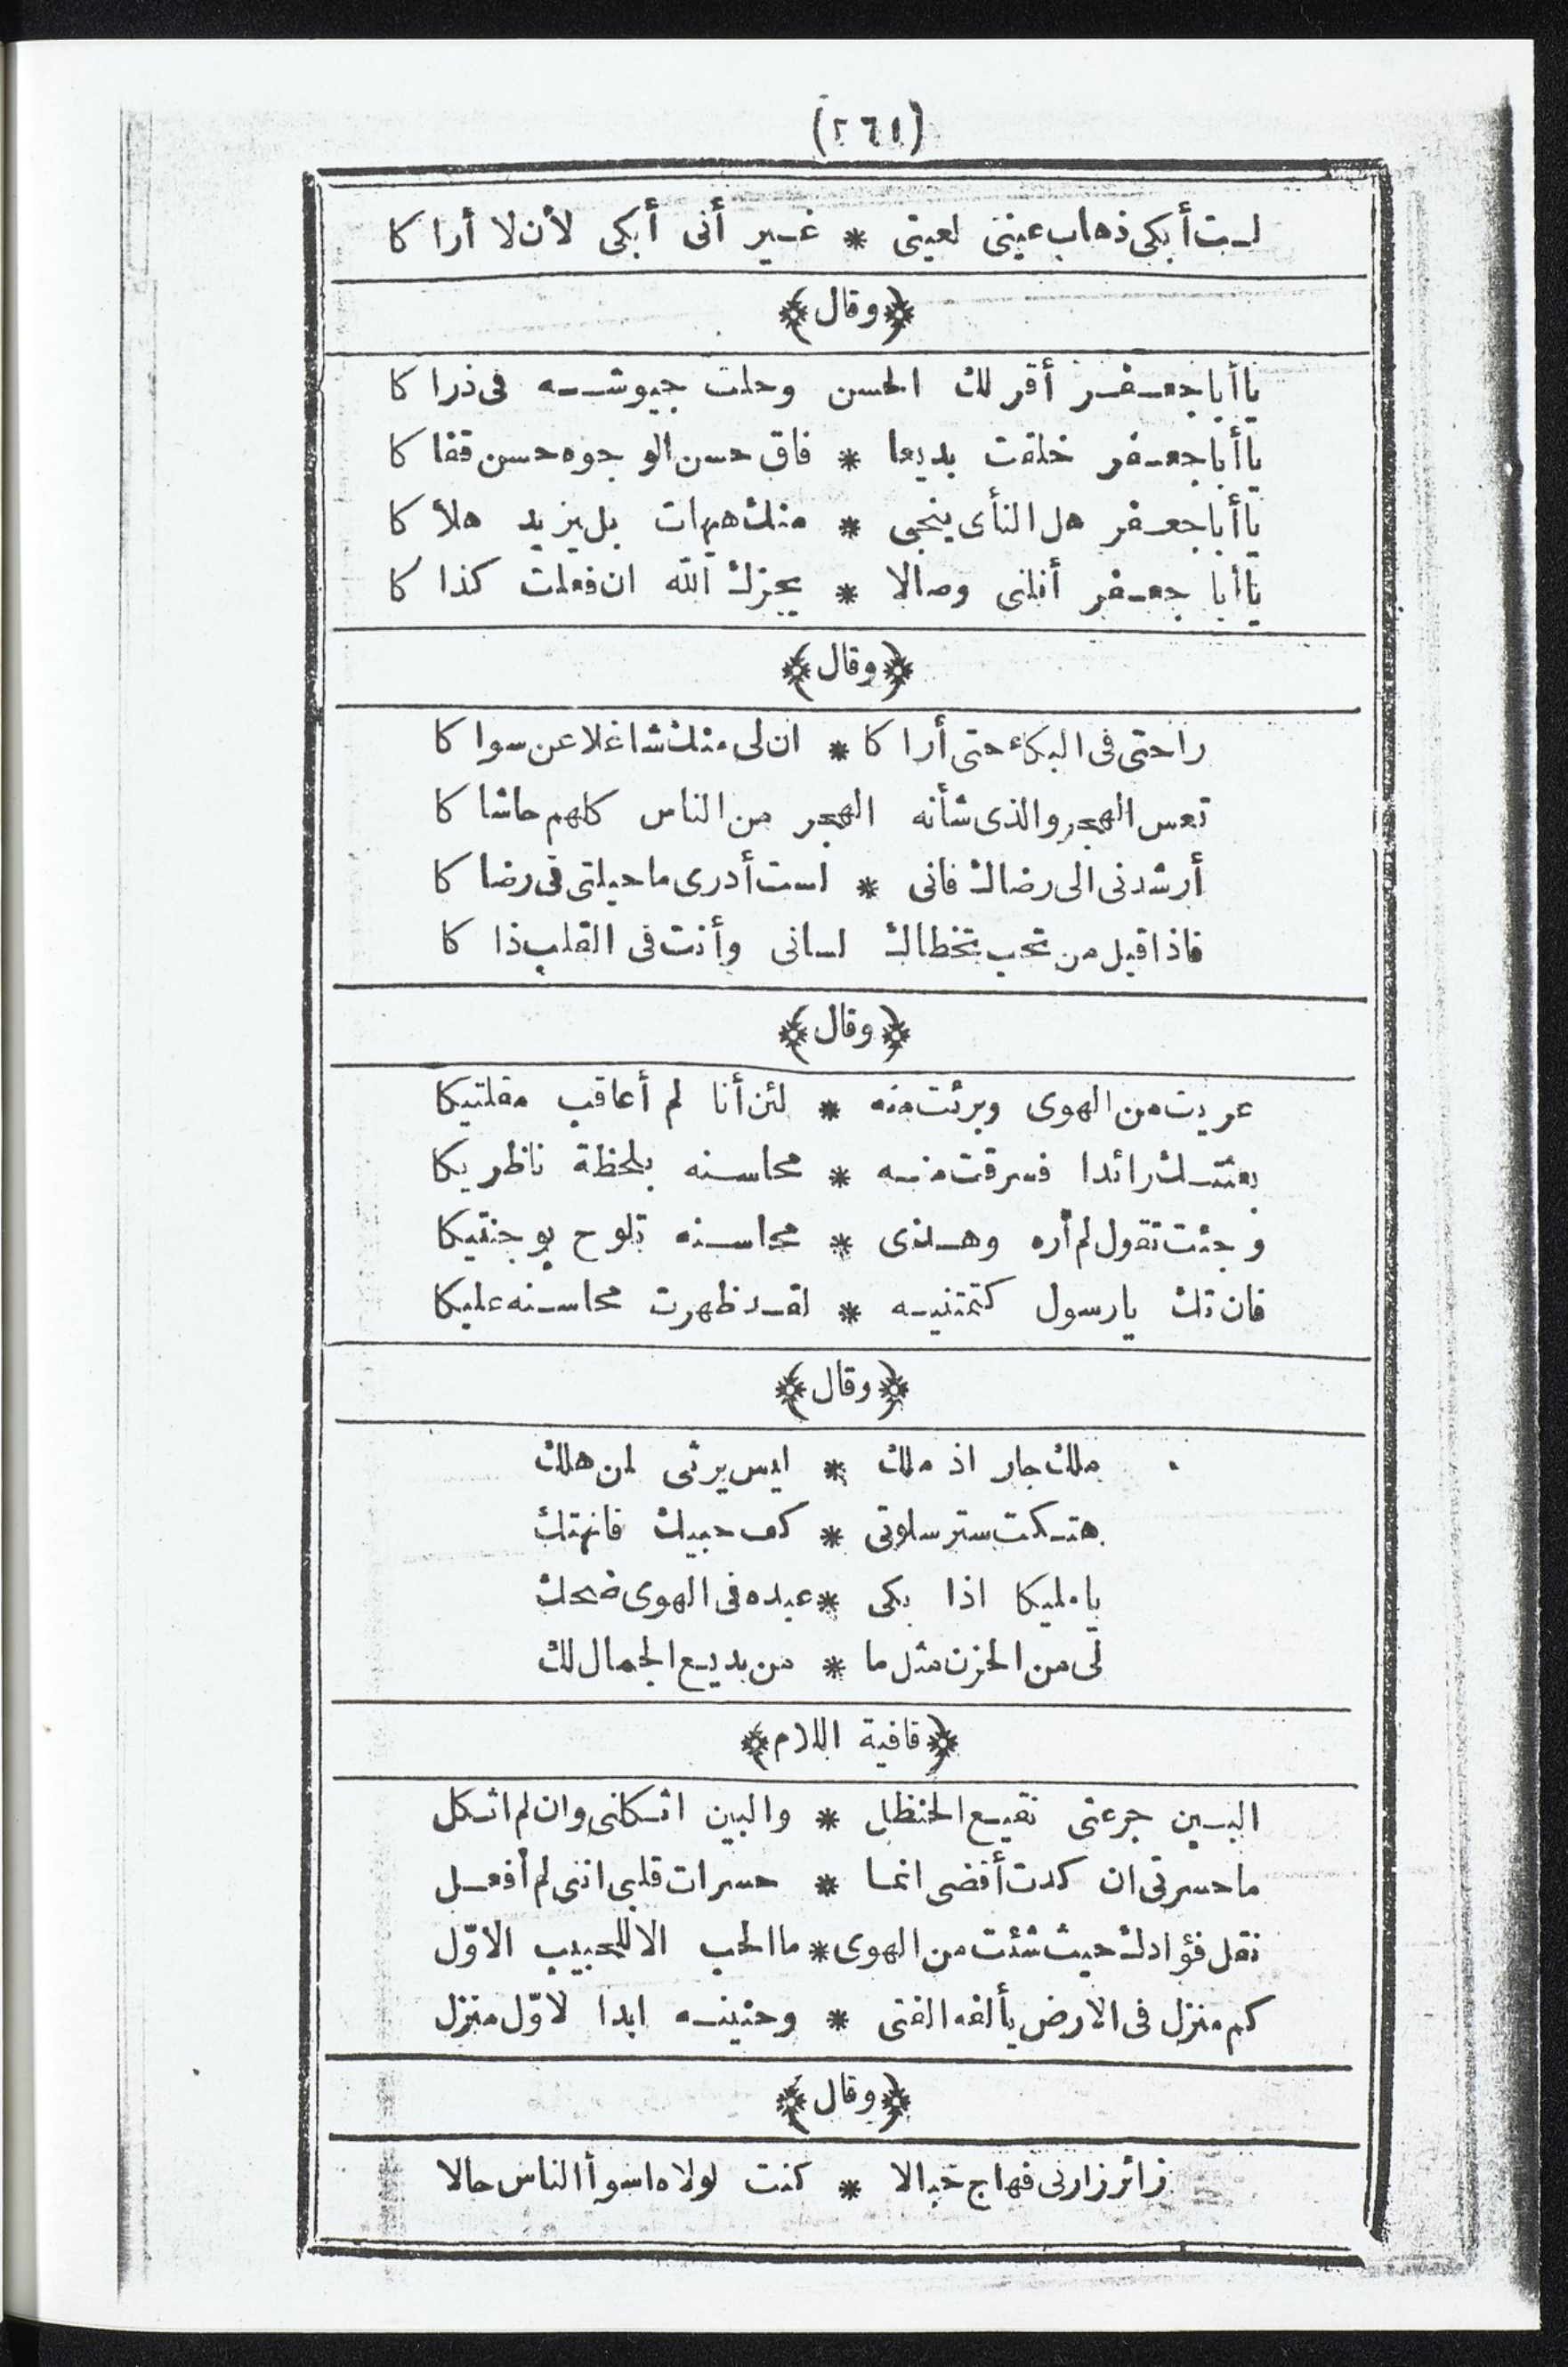 (٢٦١)
لست أبكى ذهاب عينى لعينى * غير أنى أبكى لأن لا أراكا
﴿وقال﴾
يا أبا جعفر أقر لك الحسن وحلت جيوشه فى ذراكا
يا أبا جعفر خلقت بديعا * فاق حسن الوجوه حسن قفاكا
يا أبا جعفر هل النأى ينجى * منك هيهات بل يزيد هلاكا
يا أبا جعفر أنلنى وصالا * يجزك الله ان فعلت كذاكا
﴿وقال﴾
راحتى فى البكاء حتى أراكا * ان لى منك شاغلا عن سواكا
تعس الهجر والذى شأنه الهجر من الناس كلهم حاشاكا
أرشدنى الى رضاك فانى * لست أدرى ما حيلتى فى رضاكا
فاذا قيل من تحب تخطاك لسانى وأنت فى القلب ذاكا
﴿وقال﴾
عريت من الهوى وبرئت منه * لئن أنا لم أعاقب مقلتيكا
بعثتك رائدا فسرقت منه * محاسنه بلحظة ناظريكا
وجئت تقول لم أره وهذى * محاسنه تلوح بوجنتيكا
فان تك يا رسول كتمتنيه * لقد ظهرت محاسنه عليكا
﴿وقال﴾
ملك جار اذ ملك * ليس يرثى لمن هلك
هتكت ستر سلوتى * كف حبيك فانهتك
يا مليكا اذا بكى * عبده فى الهوى ضحك
لى من الحزن مثل ما * من بديع الجمال لك
﴿قافية اللام﴾
البين جرعنى نقيع الحنظل * والبين اثكلنى وان لم اثكل
ما حسرتى ان كدت أقضى انما * حسرات قلبى اننى لم أفعل
نقل فؤادك حيث شئت من الهوى * ما الحب الا للحبيب الاوّل
كم منزل فى الارض يألفه الفتى * وحنينه ابدا لاوّل منزل
﴿وقال﴾
زائر زارنى فهاج خبالا * كنت لولاه اسوأ الناس حالا